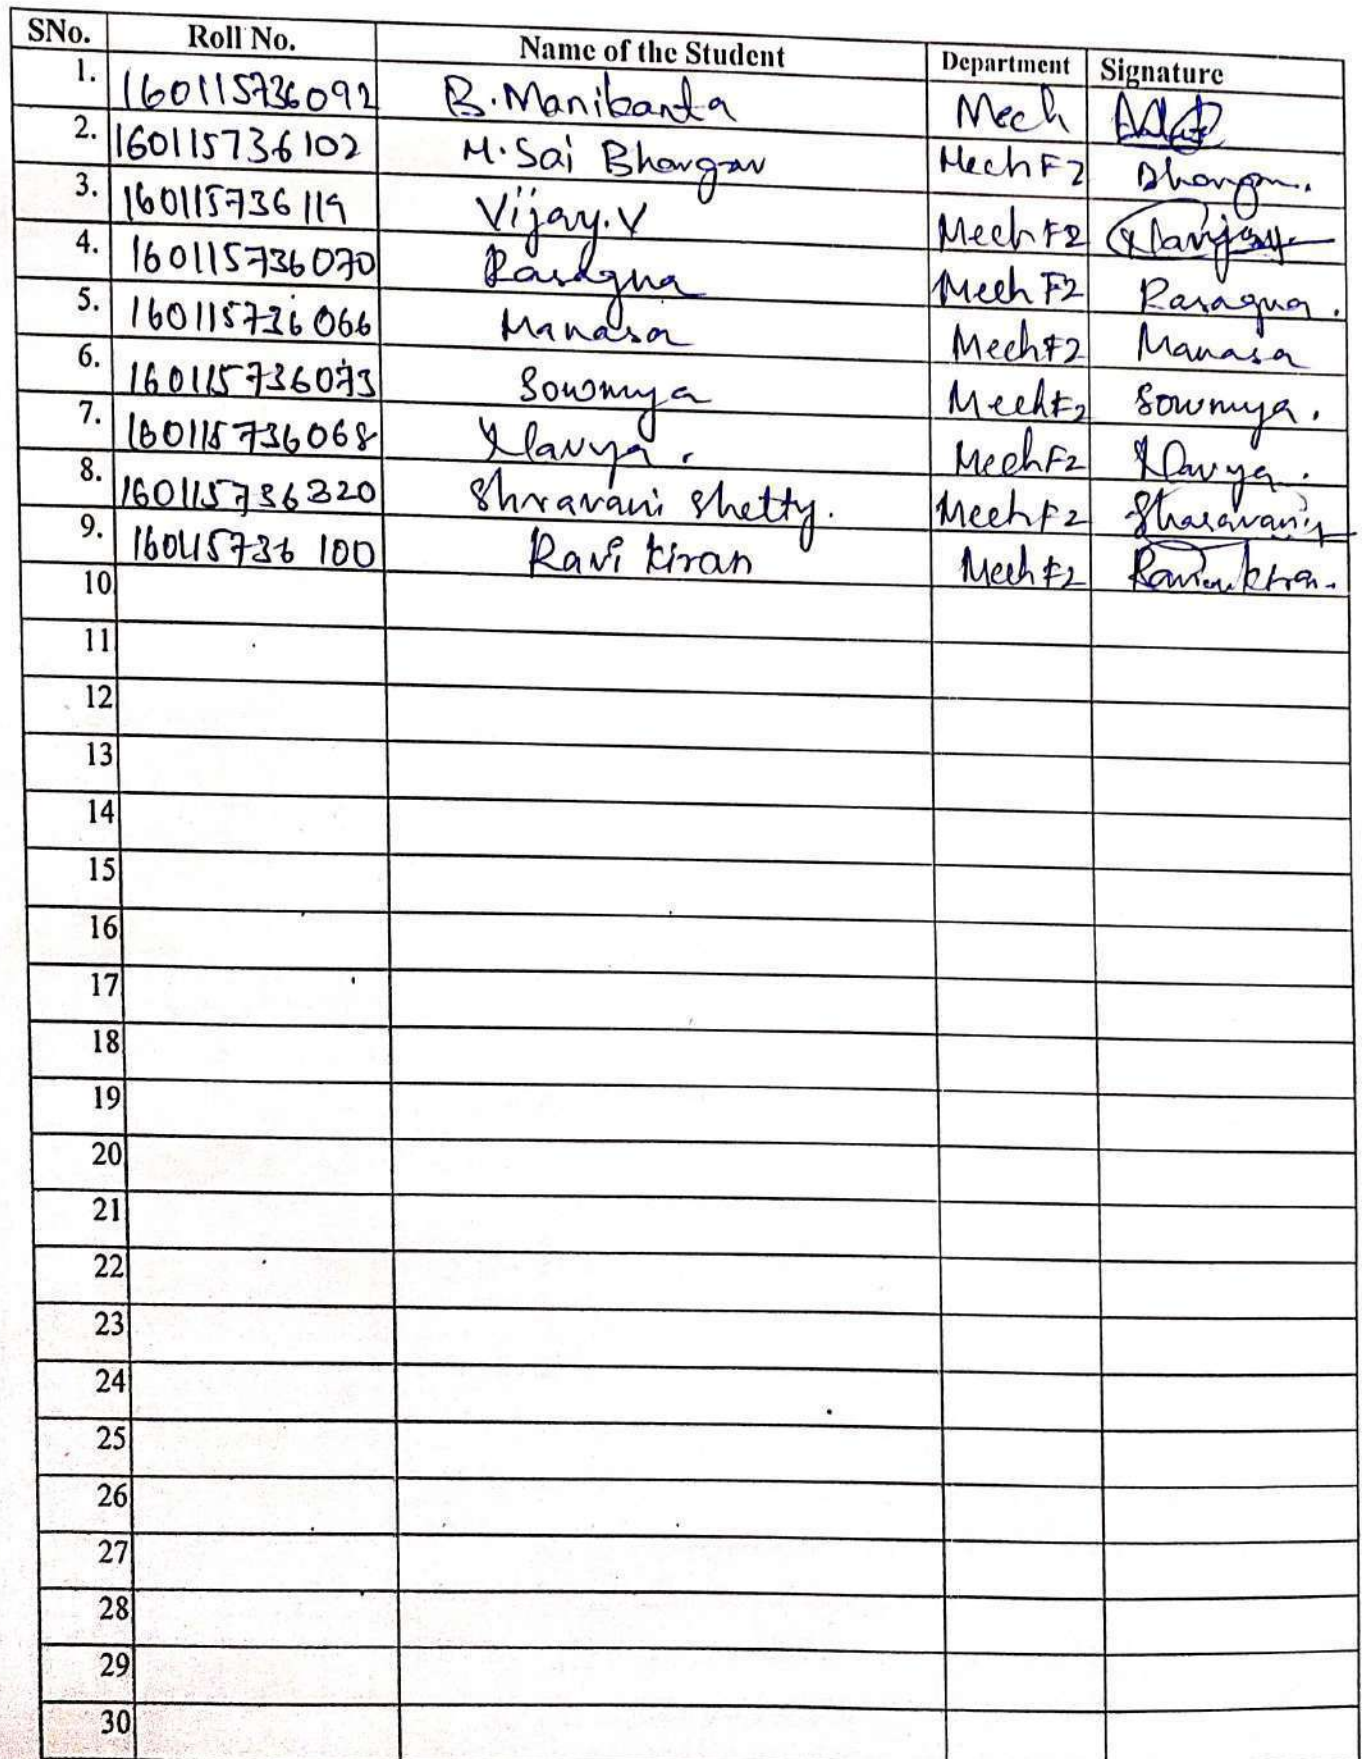 SNo. Roll No. Name of the Student Department Signature
1. 160115736092 B. Manikanta Mech
2. 160115736102 M. Sai Bhargav Mech F2
3. 160115736119 Vijay. V Mech F2
4. 160115736070 Rasagna Mech F2 Rasagna.
5. 160115736066 Manasa Mech F2 Manasa
6. 160115736073 Sowmya Mech F2 Sowmya.
7. 160115736068 Mech F2
8. 160115736320 Shravani Shetty. Mech F2
9. 160115736 100 Ravi Kiran Mech F2
10
11
12
13
14
15
16
17
18
19
20
21
22
23
24
25
26
27
28
29
30